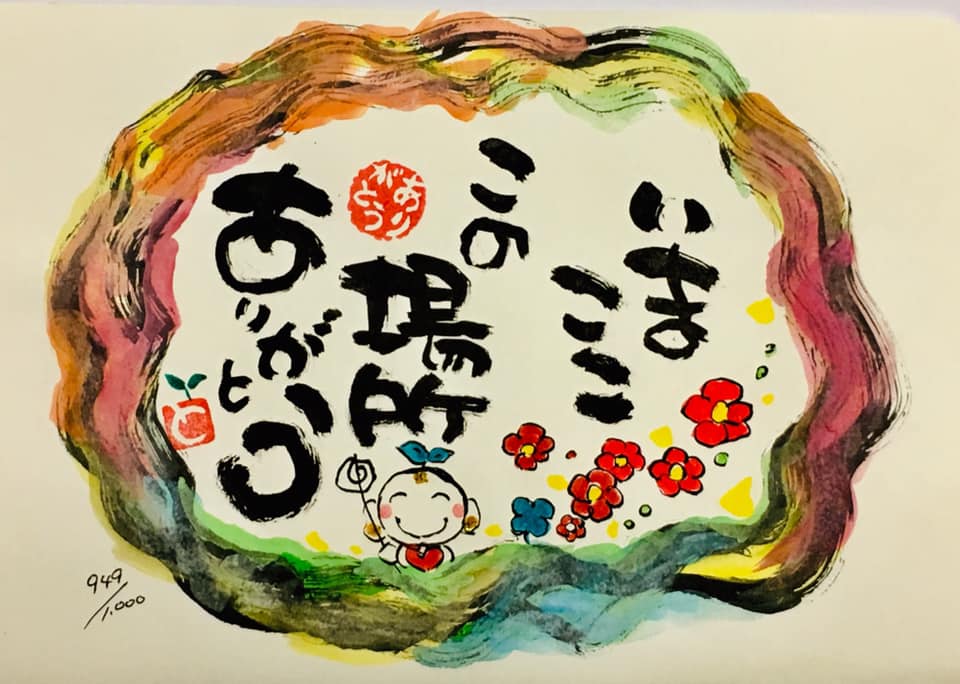 いま
ここ
この
場所
ありがとう
ありがとう
と
949/1,000